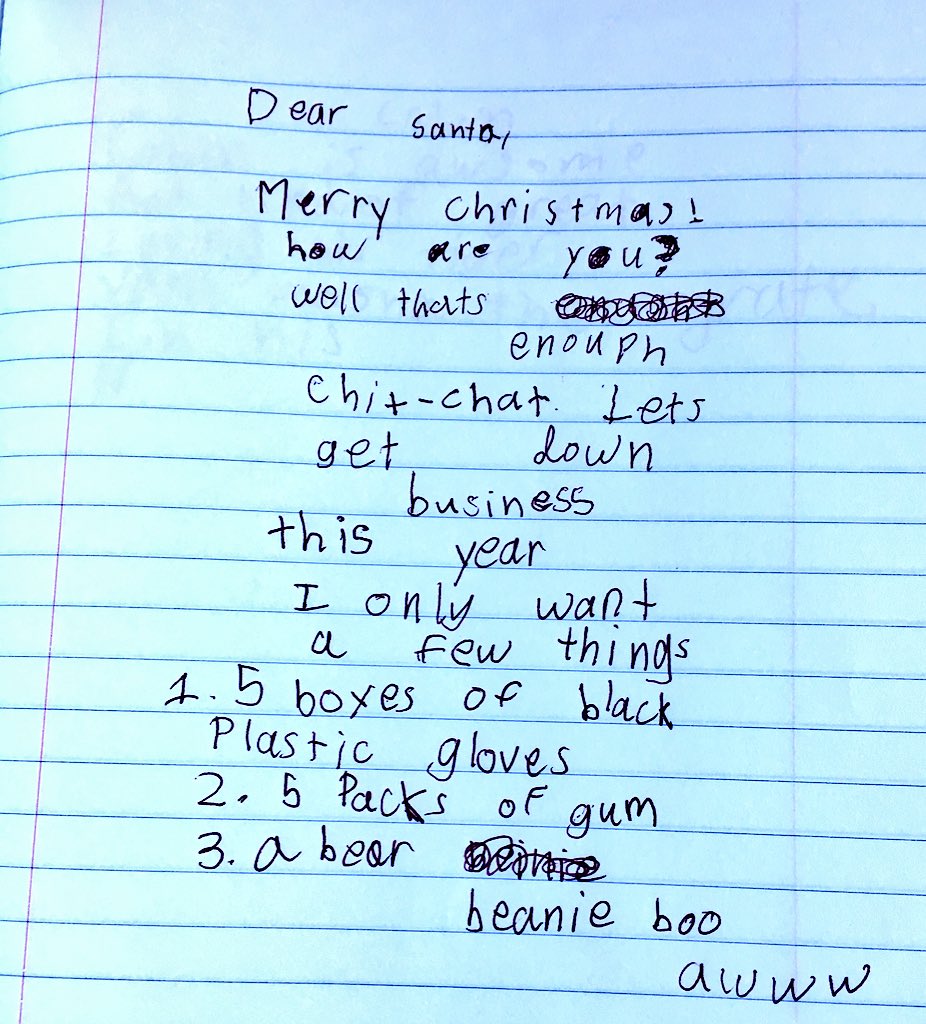 Dear Santa,
Merry christmas!
how are you?
well thats
enouph
chit-chat. Lets
get down
business
this year
I only want
a few things
1. 5 boxes of black
Plastic gloves
2. 5 Packs of gum
3. a bear
beanie boo
awww